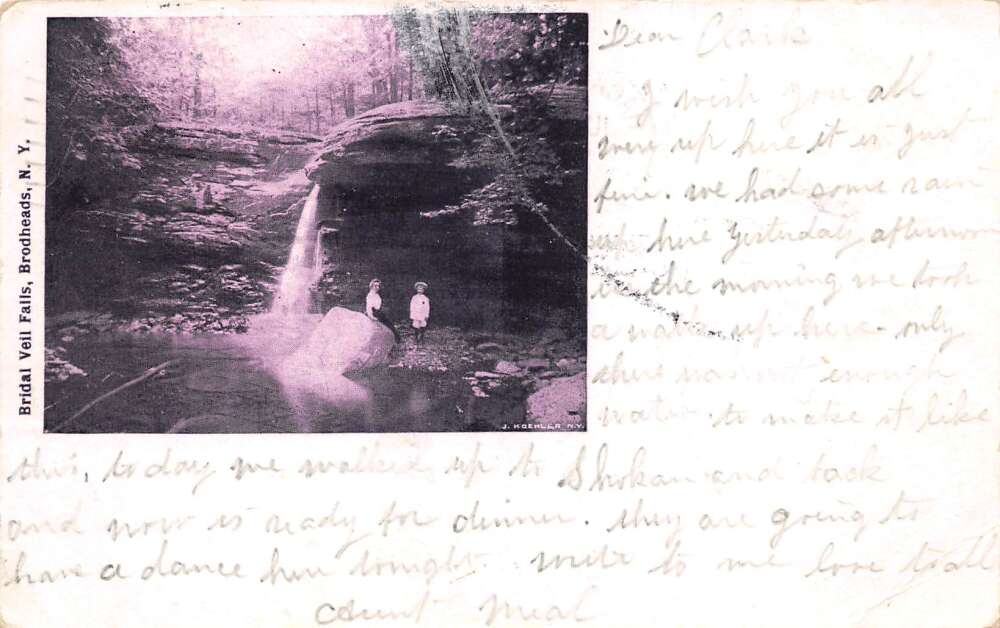 Bridal Veil Falls, Brodheads, N. Y.
J. KOEHLER N.Y.
Dear Clark
I wish you all
were up here it is just
fine. we had some rain
up here yesterday afternoon
in the morning we took
a walk up here. only
there was not enough
water to make it like
this, to day we walked up to Shokan and back
and now is ready for dinner. they are going to
have a dance here tonight. write to me love to all
Aunt